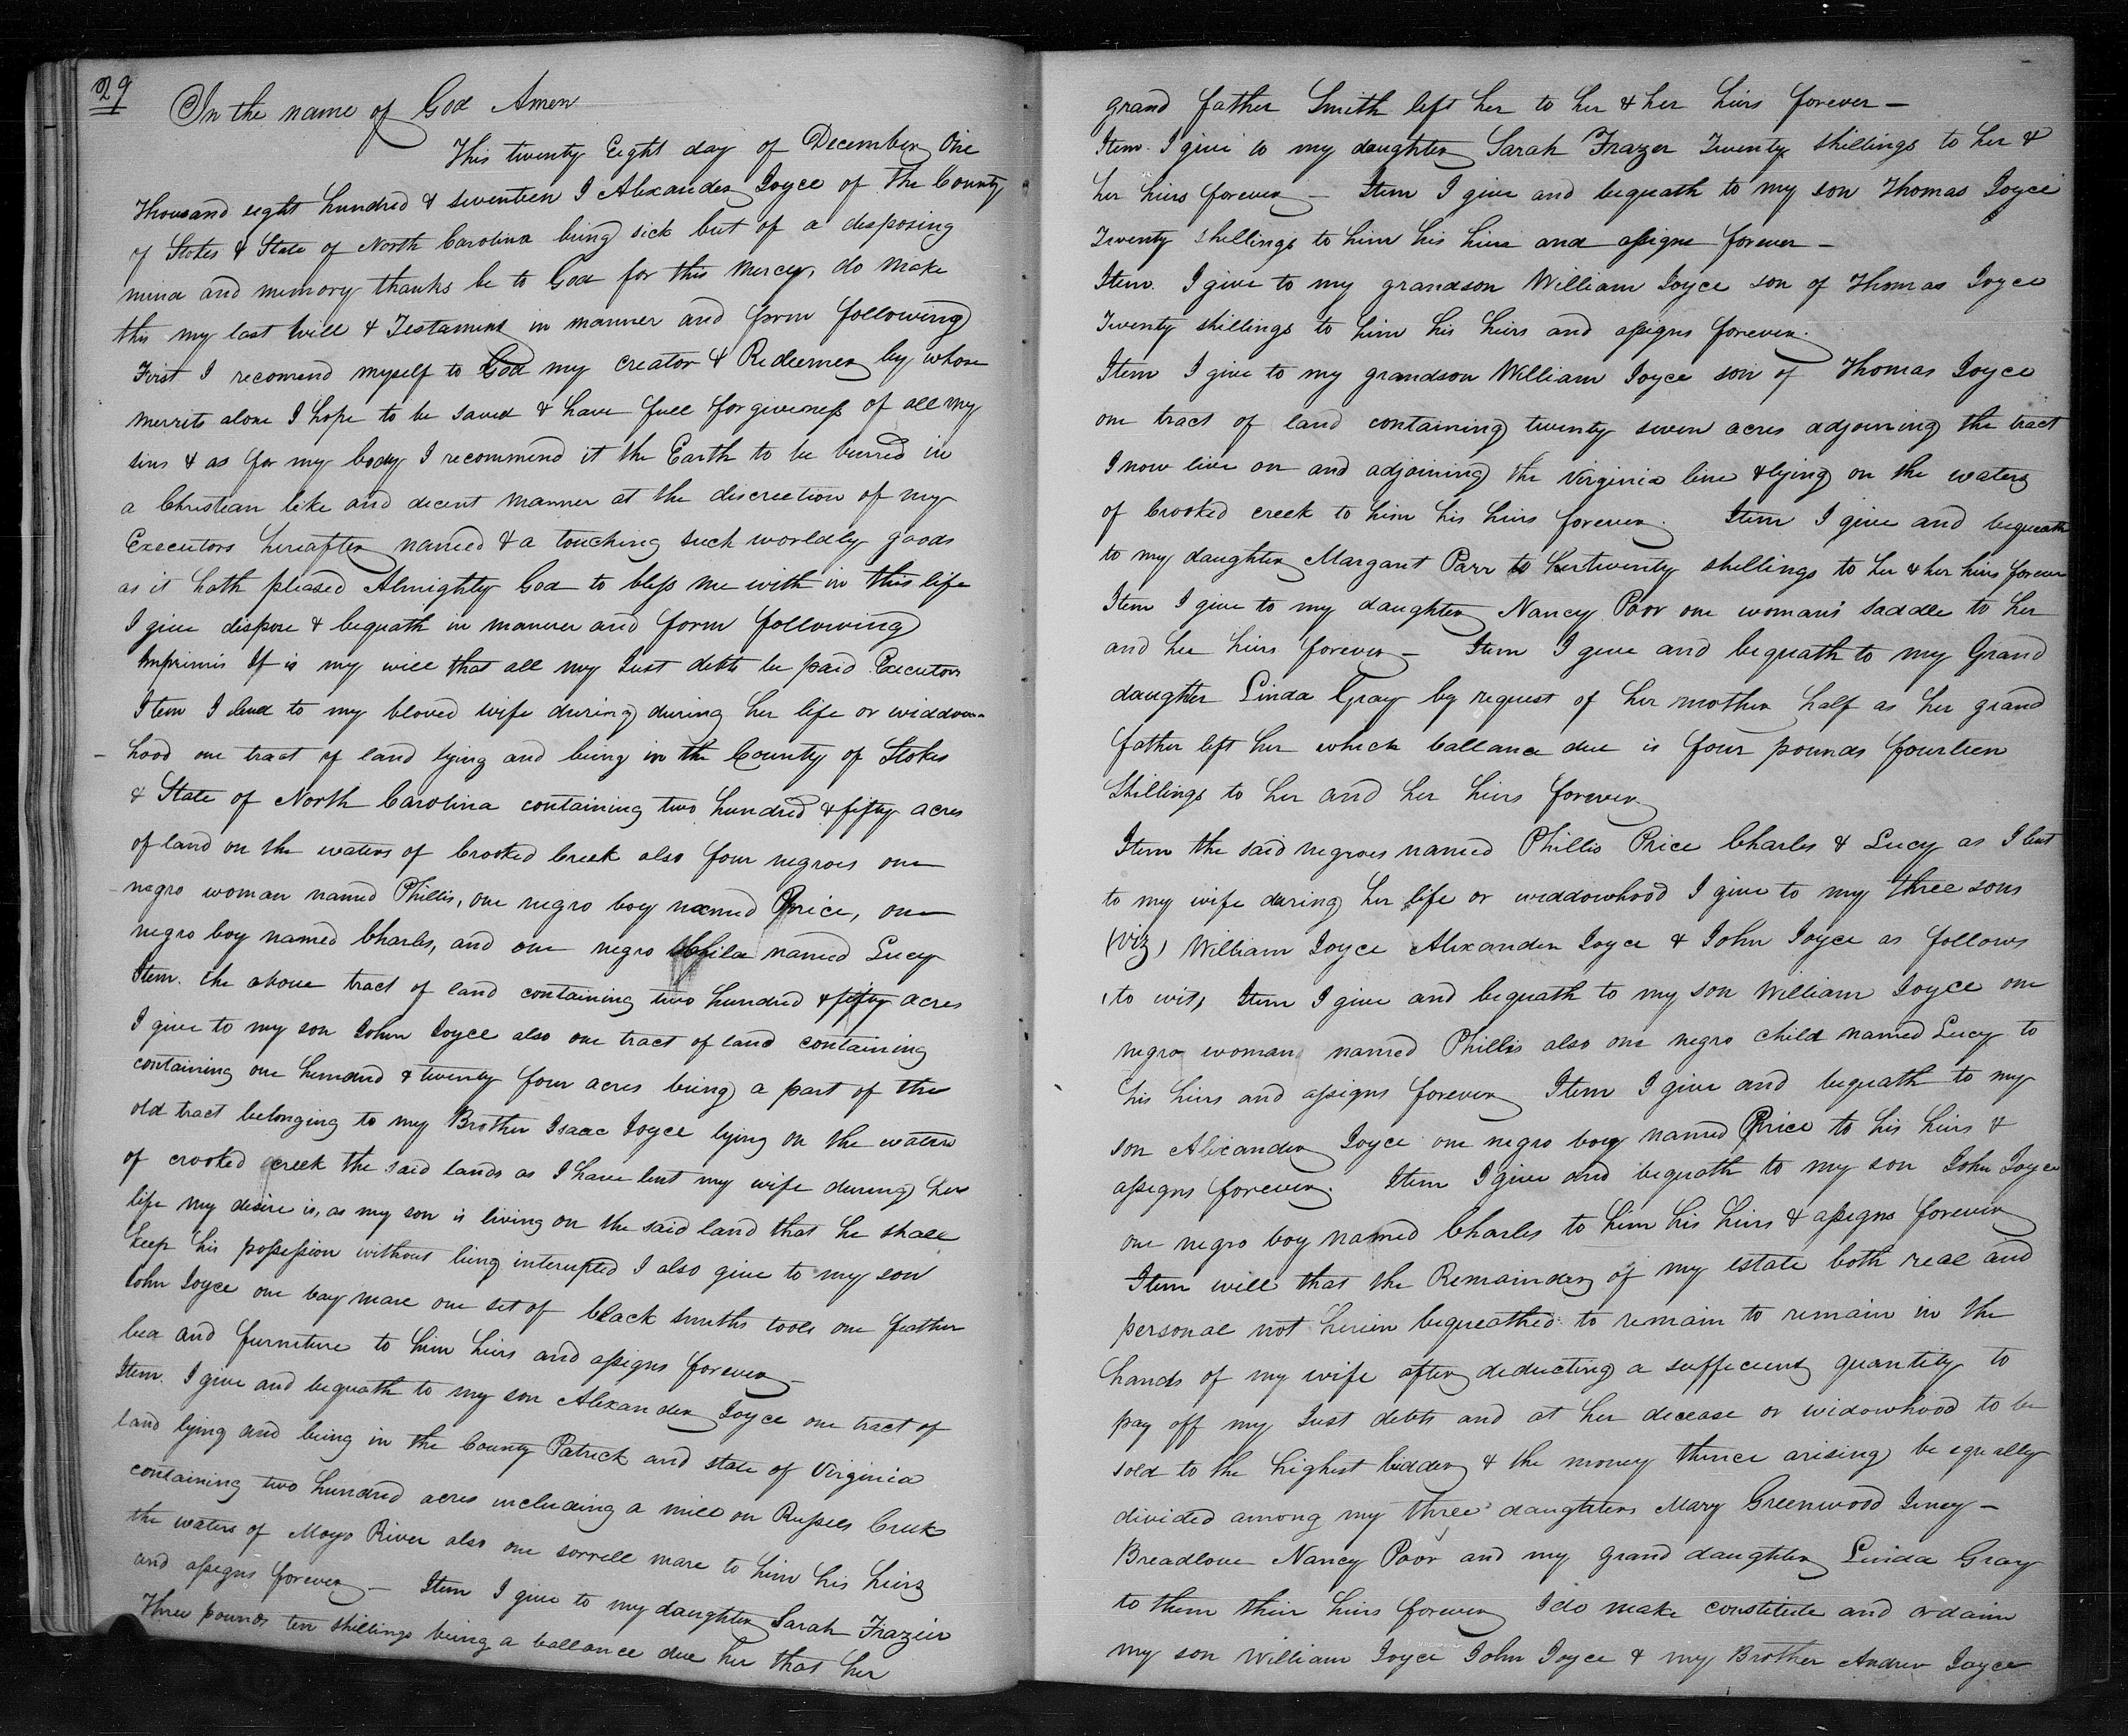 29
In the name of God Amen
This twenty Eight day of December One
Thousand eight hundred & seventeen I Alexander Joyce of the County
of Stokes & State of North Carolina being sick but of a disposing
mind and memory thanks be to God for this mercy, do make
this my last will & Testament in manner and form following
First I recomend myself to God my creator & Redeemer by whose
merrits alone I hope to be saved & have full forgiveness of all my
sins & as for my body I recommend it the Earth to be burred in
a Christian like and decent manner at the discreetion of my
Executors hereafter named & a touching such worldly goods
as it hath pleased Almighty God to bless me with in this life
I give dispose & bequath in manner and form following
Inprimis If is my will that all my Just debts be paid Executors
Item I lend to my bloved wife during during her life or widdow=
hood one tract of land lying and being in the County of Stokes
& State of North Carolina containing two hundred & fifty acres
of land on the waters of Crooked Creek also four negroes one
negro woman named Phillis, one negro boy named Price, one
negro boy named Charles, and one negro child named Lucy
Item. the above tract of land containing two hundred & fifty acres
I give to my son John Joyce also one tract of land containing
containing one hundred & twenty four acres being a part of the
old tract belonging to my Brother Isaac Joyce lying on the waters
of crooked creek the said lands as I have lent my wife during her
life my desire is, as my son is living on the said land that he shall
keep his possession without being interupted I also give to my son
John Joyce one bay mare one set of black smiths tools one feather
bed and furniture to him heirs and assigns forever –
Item. I give and bequath to my son Alexander Joyce one tract of
land lying and being in the County Patrick and state of Virginia
containing two hundred acres including a mill on Russels Creek
the waters of Mayo River also one sorrell mare to him his heirs
and assigns forever – Item I give to my daughter Sarah Frazier
Three pounds ten shillings being a ballance due her that her
grand father Smith left her to her & her heirs forever –
Item. I give to my daughter Sarah Frazer Twenty shillings to her &
her heirs forever – Item I give and bequath to my son Thomas Joyce
Twenty shillings to him his heirs and assigns forever –
Item. I give to my grandson William Joyce son of Thomas Joyce
Twenty shillings to him his heirs and assigns forever.
Item I give to my grandson William Joyce son of Thomas Joyce
one tract of land containing twenty seven acres adjoining the tract
I now live on and adjoining the Virginia line & lying on the waters
of Crooked creek to him his heirs forever. Item I give and bequeath
to my daughter Margaret Parr to her twenty shillings to her & her heirs forever
Item I give to my daughter Nancy Poor one woman's saddle to her
and her heirs forever – Item I give and bequath to my Grand
daughter Linda Gray by request of her mother half as her grand
father left her which ballance due is four pounds fourteen
Shillings to her and her heirs forever
Item the said negroes named Phillis Price Charles & Lucy as I lent
to my wife during her life or widdowhood I give to my three sons
(viz) William Joyce Alexander Joyce & John Joyce as follows
(to wit) Item I give and bequath to my son William Joyce one
negro woman named Phillis also one negro child named Lucy to
his heirs and assigns forever Item I give and bequath to my
son Alexander Joyce one negro boy named Price to his heirs &
assigns forever. Item I give and bequath to my son John Joyce
one negro boy named Charles to him his heirs & assigns forever
Item will that the Remainder of my estate both real and
personal not herein bequeathed to remain to remain in the
hands of my wife after deducting a suffecient quantity to
pay off my Just debts and at her decease or widowhood to be
sold to the highest bidder & the money thence arising be equally
divided among my three daughters Mary Greenwood Jincy –
Breadlove Nancy Poor and my grand daughter Linda Gray
to them their heirs forever I do make constitute and ordain
my son William Joyce John Joyce & my Brother Andrew Joyce